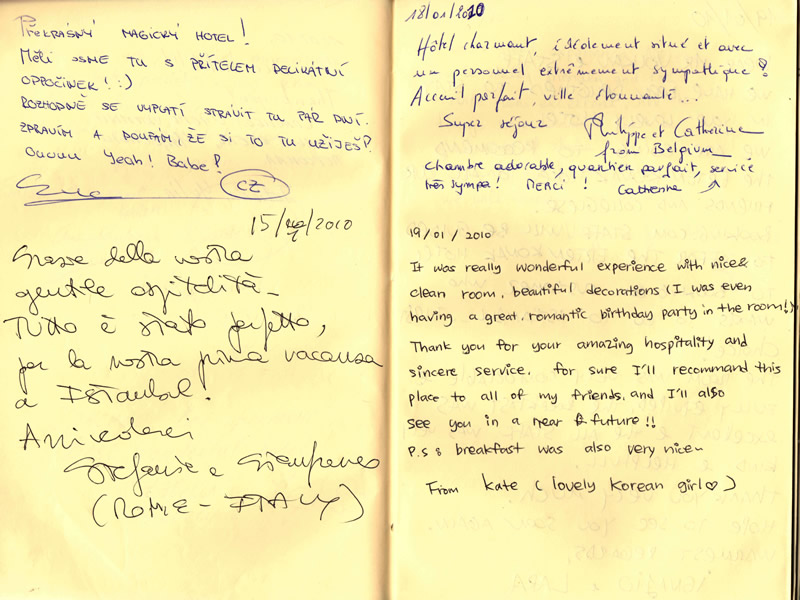 PŘEKRÁSNÝ MAGICKÝ HOTEL!
MĚLI JSME TU S PŘÍTELEM DELIKÁTNÍ
ODPOČINEK! :)
ROZHODNĚ SE VYPLATÍ STRÁVIT TU PÁR DNÍ.
ZDRAVÍM A DOUFÁM, ŽE SI TO TU UŽIJEŠ?
Ouuuu Yeah! Babe?
CZ
15/2010
Grazie della nostra
gentile ospitalità_
Tutto è stato perfetto,
per la nostra prima vacanza
a Istanbul!
Arrivederci
Stefania e
(ROME - ITALY)
18/01/2010
Hôtel charmant, idéalement situé et avec
un personnel extrêmement sympathique!
Accueil parfait, ville étonnante...
Super séjour Philippe et Catherine
from Belgium
chambre adorable, quartier parfait, service
très sympa! MERCI! Catherine
19/01/2010
It was really wonderful experience with nice&
clean room, beautiful decorations (I was even
having a great, romantic birthday party in the room!)
Thank you for your amazing hospitality and
sincere service. for sure I'll recommand this
place to all of my friends, and I'll also
see you in a near future!!
P.S: breakfast was also very nice~
From kate (lovely Korean girl♡)